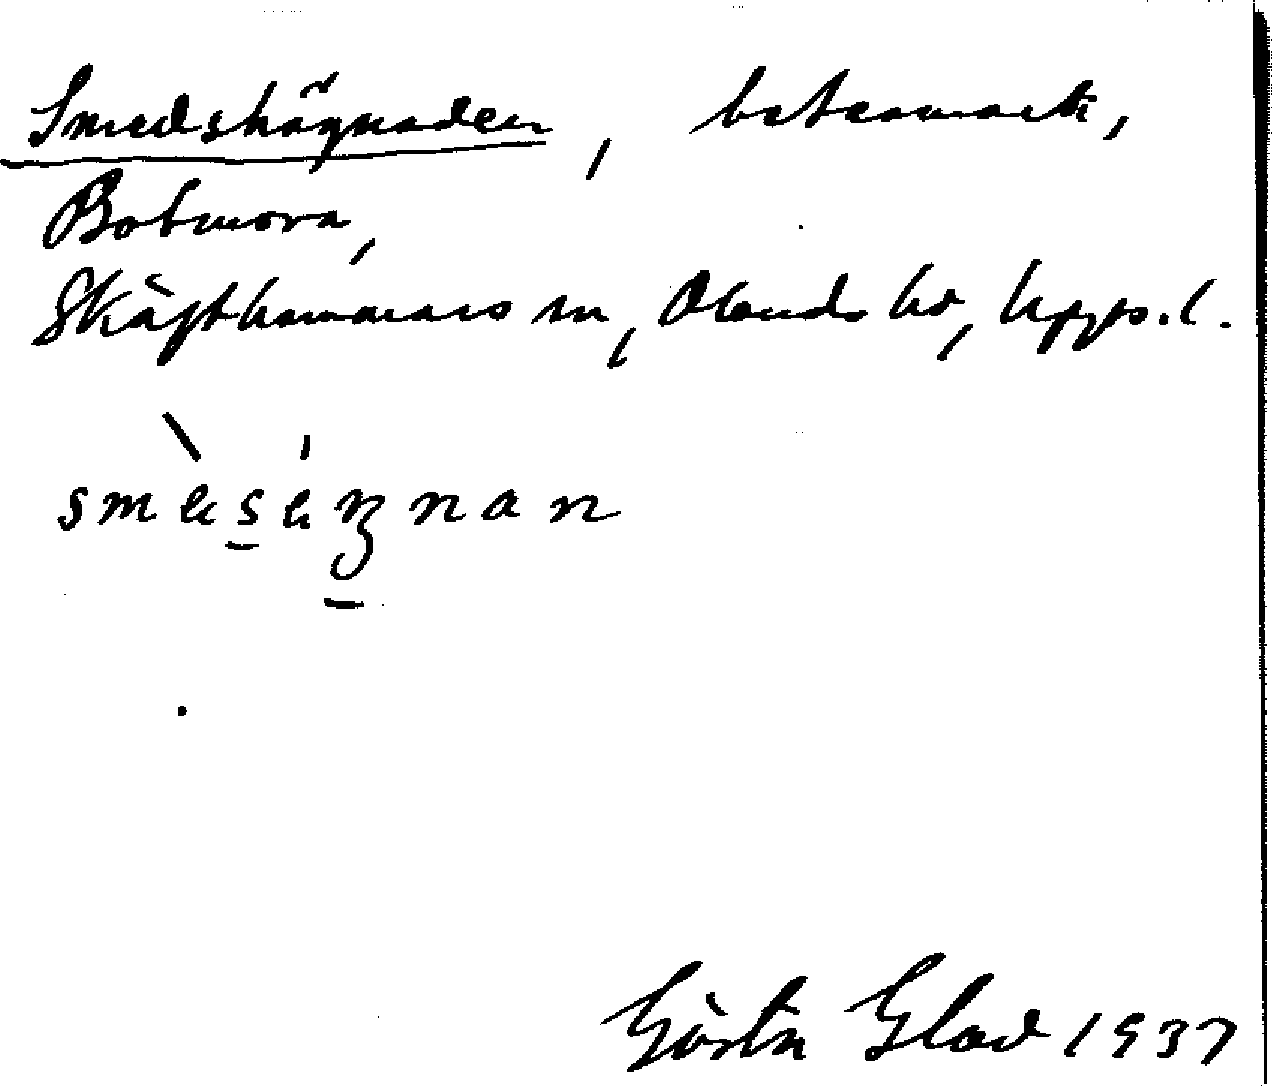 Smedshägnaden, betesmark,
Botmora,
Skäfthammars sn, Olands hd, Upps. l.
Gösta Glad 1937